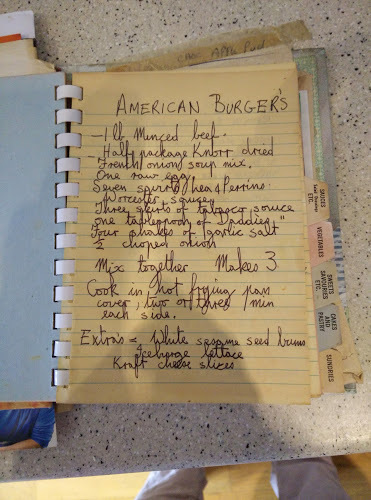 AMERICAN BURGER'S
1 lb Minced beef.
Half package Knorr dried
French onion soup mix.
One raw egg
Seven squirts Lea & Perrins.
Worcester sauce.
Three squirts of tabasco sauce
one tablespoon of Daddies"
Four shakes of garlic salt"
½ choped onion
Mix together Makes 3
Cook in hot frying pan
cover, two or three min
each side.
Extra's = White sesame seed buns
Iceberge lettace
Kraft cheese slices
SAUCES
ETC.
VEGETABLES
SWEETS
SAVOURIES
ETC.
CAKES
AND
PASTRY
SUNDRIES